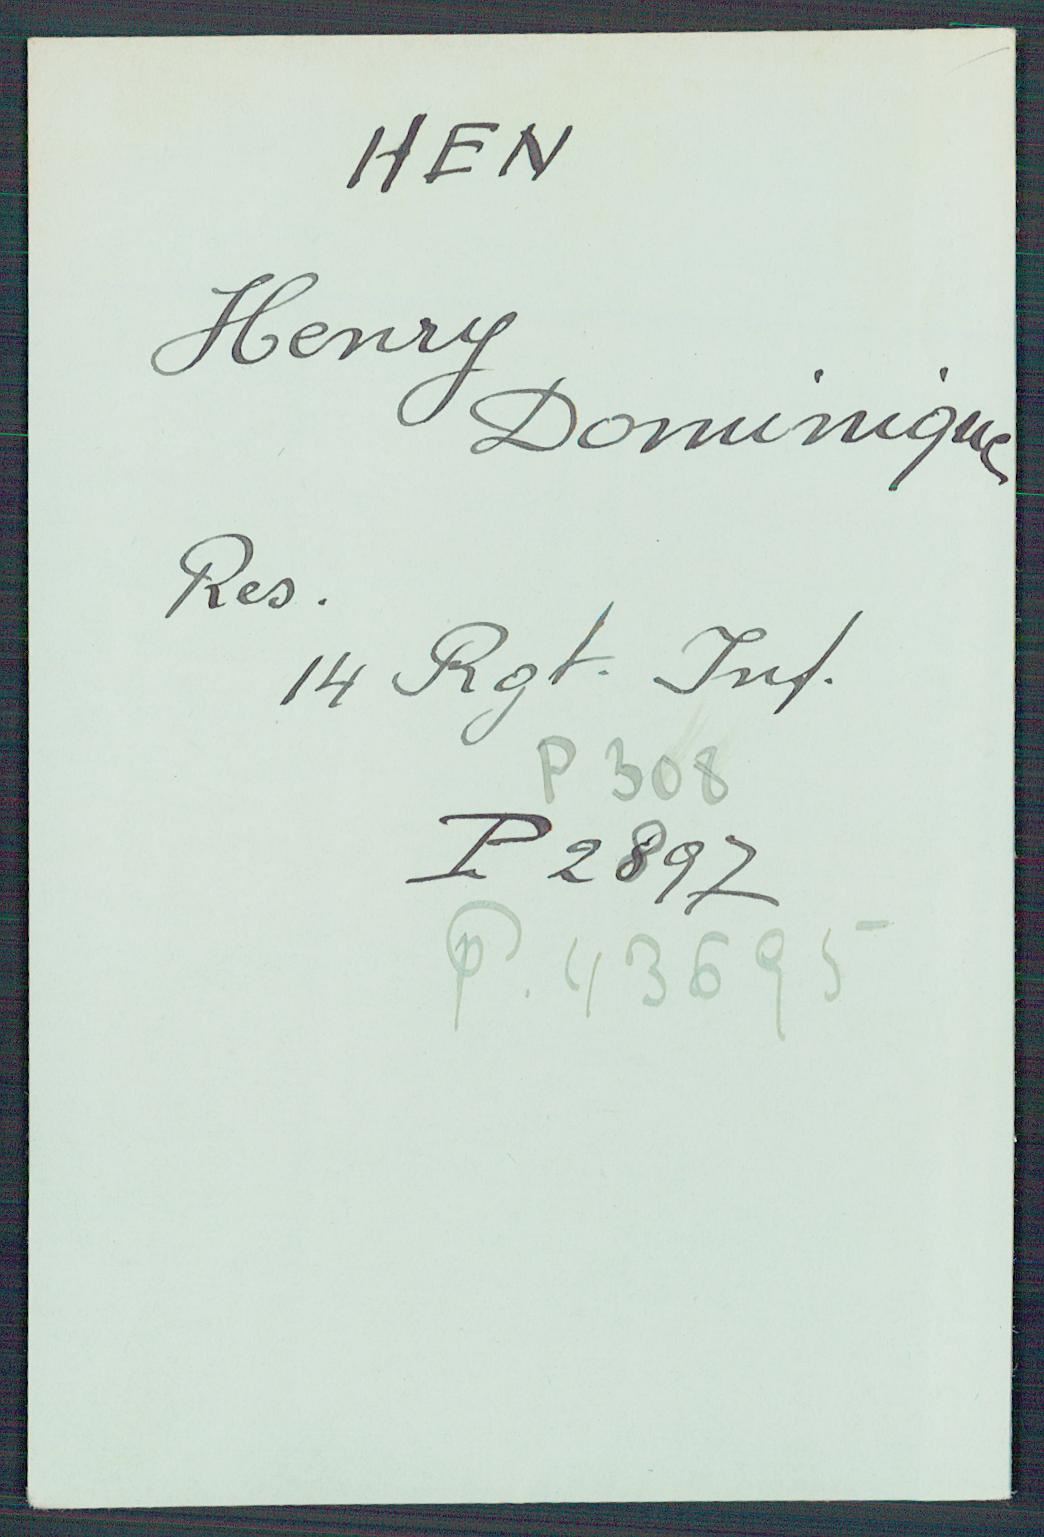 HEN
Henry
Dominique
Res.
14 Rgt. Inf.
P 308
P 2897
P. 43695